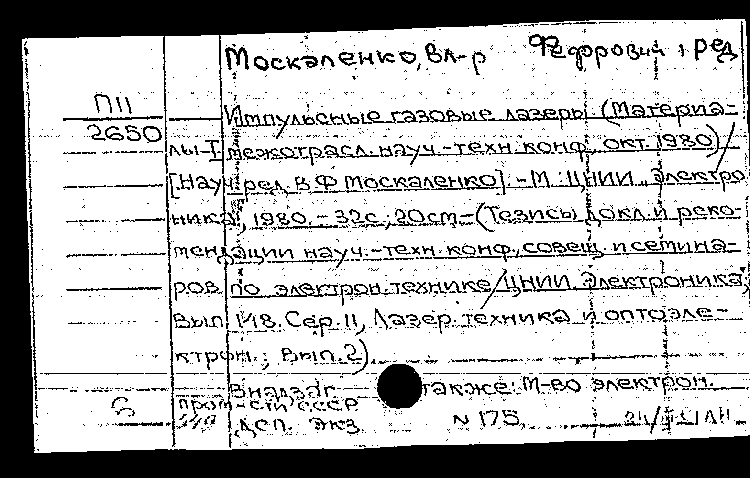 Москаленко, Вл-р Федорович, ред
П11
2650
Импульсные газовые лазеры (Материа-
лы I межотрасл. науч.-техн. конф. окт. 1980) /
[Науч. ред. В.Ф Москаленко]. - М.: ЦНИИ „Электро
ника", 1980. - 32с; 20см - (Тезисы докл. и реко-
мендации науч.-техн. конф., совещ. и семина-
ров по электрон. технике / ЦНИИ „Электроника";
Вып. 148. Сер. 11, Лазер. техника и оптоэле-
ктрон.; Вып. 2).
В надзаг. также: М-во электрон.
пром-сти СССР
ДСП. Экз N 175